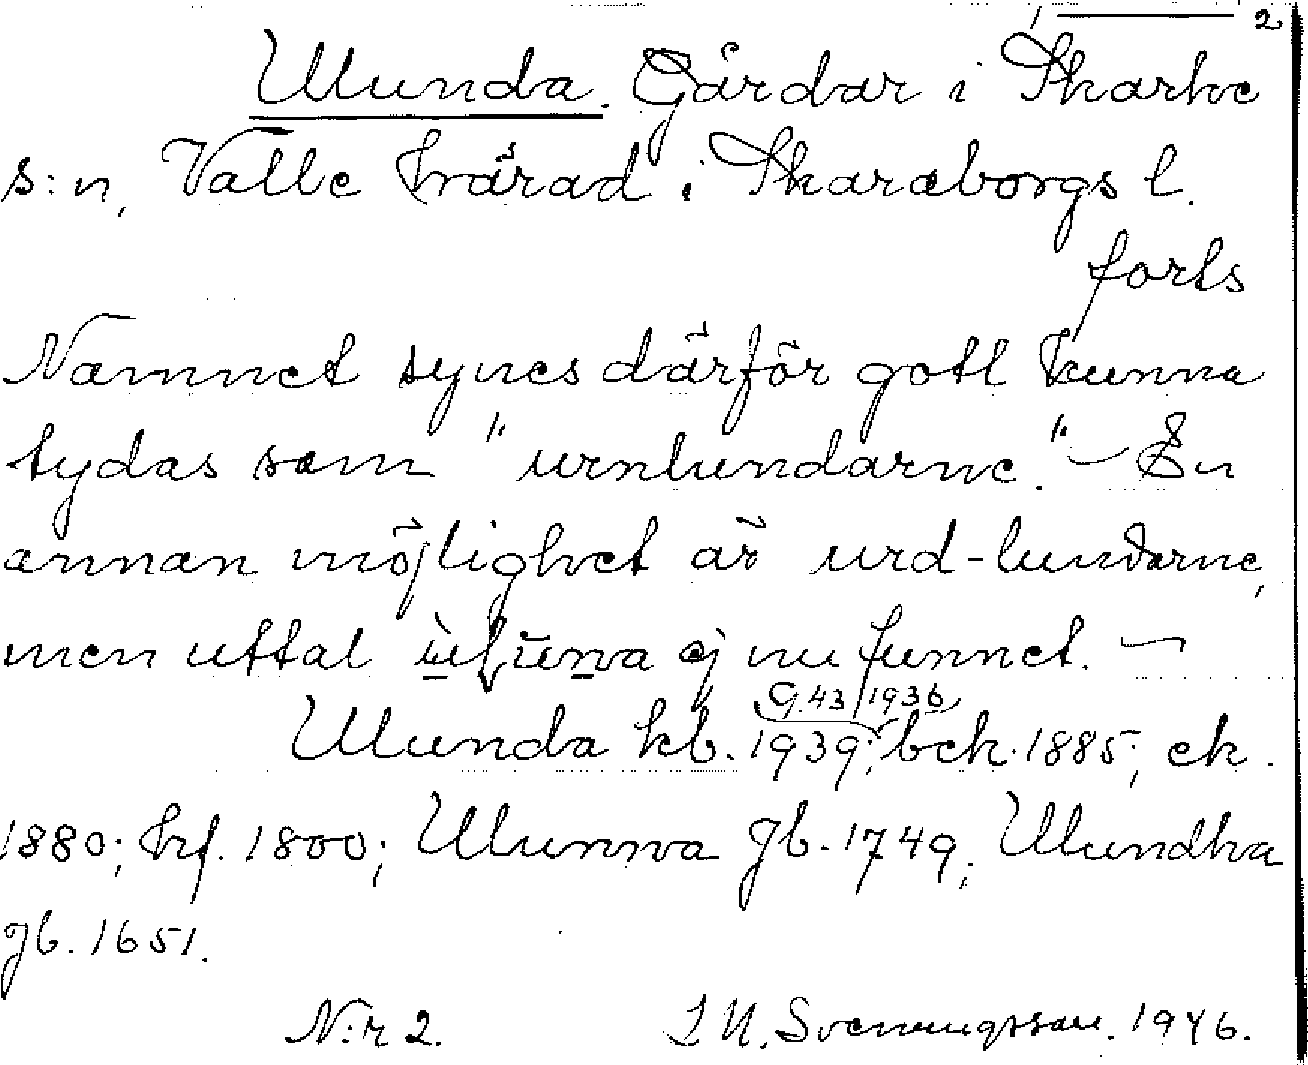 1 ——— 2
Ulunda. Gårdar i Skarke
s:n, Valle härad i Skaraborgs l.
forts
Namnet synes därför gott kunna
tydas som "urnlundarne." – En
annan möjlighet är urd-lundarne,
men uttal ej nu funnet. –
G.43/1936
Ulunda kb. 1939; bek. 1885; ek.
1880; hf. 1800; Ulunna jb. 1749; Ulundha
jb. 1651.
N:r 2. S. N. Svenungsson. 1946.